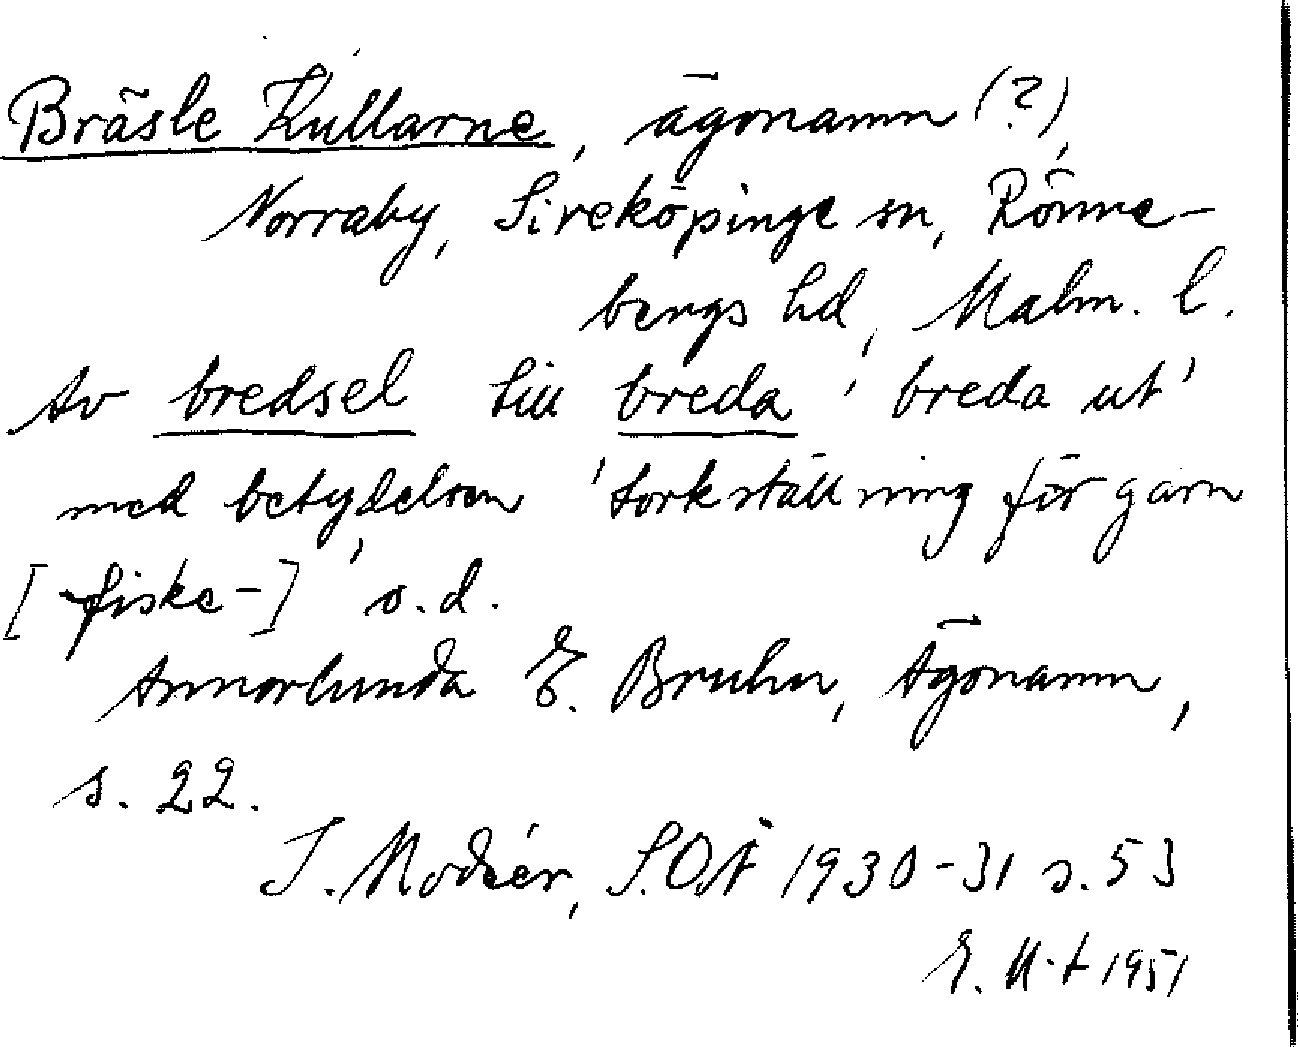 Bräsle Kullarne, ägonamn (?),
Norraby, Sireköpinge sn, Rönne-
bergs hd, Malm. l.
Av bredsel till breda 'breda ut'
med betydelsen 'torkställning för garn
[fiske-]' o.d.
Annorlunda E. Bruhn, Ägonamn,
s. 22.
I. Modéer, S.O.Å 1930-31 s. 53